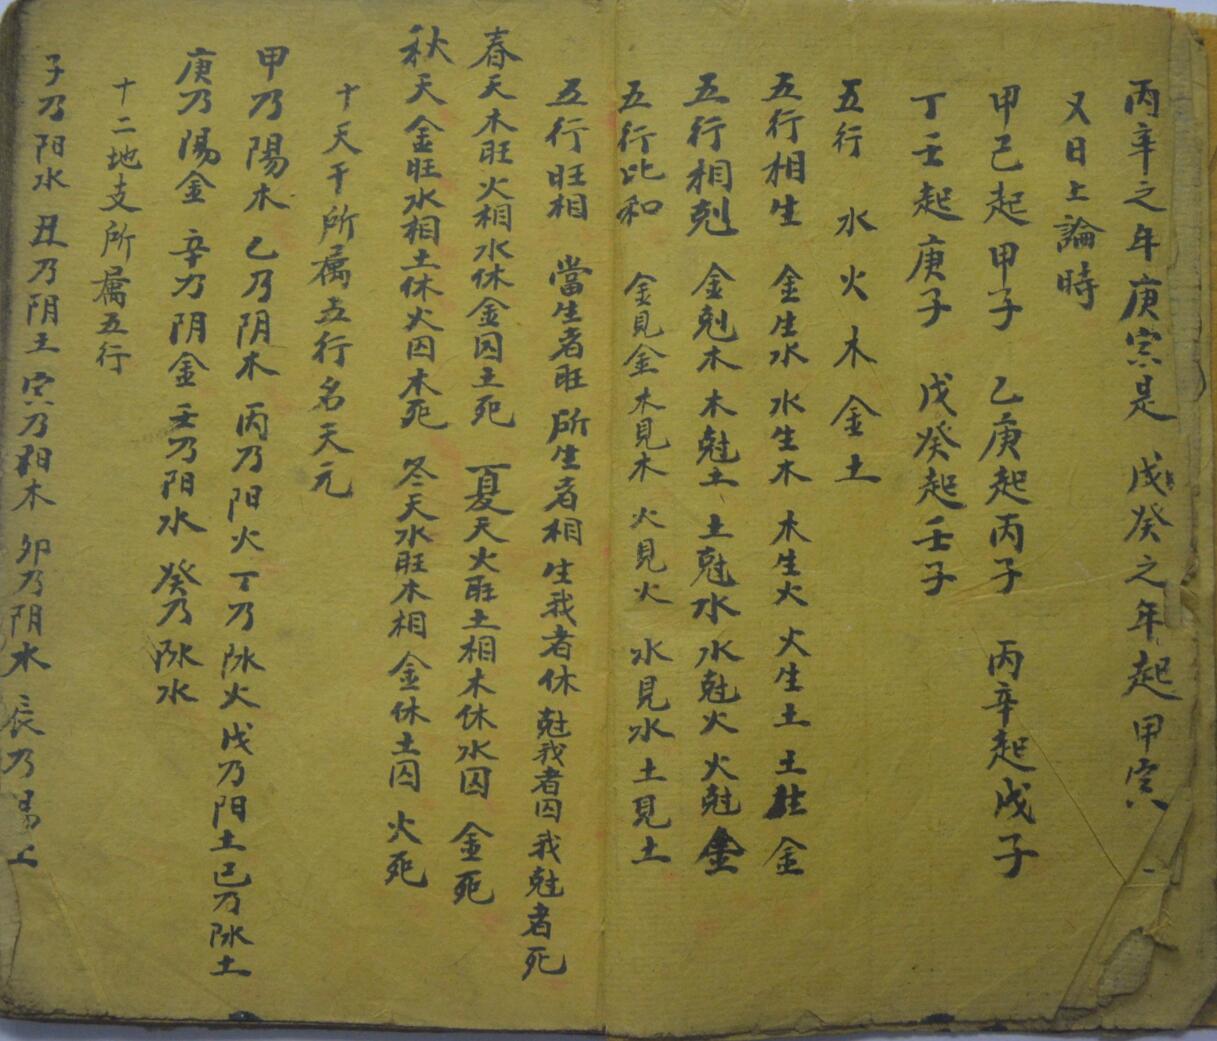 丙辛之年庚寅是 戊癸之年起甲寅
又日上論時
甲己起甲子 乙庚起丙子 丙辛起戊子
丁壬起庚子 戊癸起壬子
五行 水火木金土
五行相生 金生水 水生木 木生火 火生土 土生金
五行相剋 金剋木 木尅土 土尅水 水尅火 火尅金
五行比和 金見金 木見木 火見火 水見水 土見土
五行旺相 當生者旺 所生者相 生我者休 尅我者囚 我尅者死
春天木旺火相水休金囚土死 夏天火旺土相木休水囚 金死
秋天金旺水相土休火囚木死 冬天水旺木相 金休土囚 火死
十天干所属五行名天元
甲乃陽木 乙乃阴木 丙乃阳火 丁乃阴火 戊乃阳土 己乃阴土
庚乃陽金 辛乃阴金 壬乃阳水 癸乃阴水
十二地支所属五行
子乃阳水 丑乃阴土 寅乃阳木 卯乃阴木 辰乃土